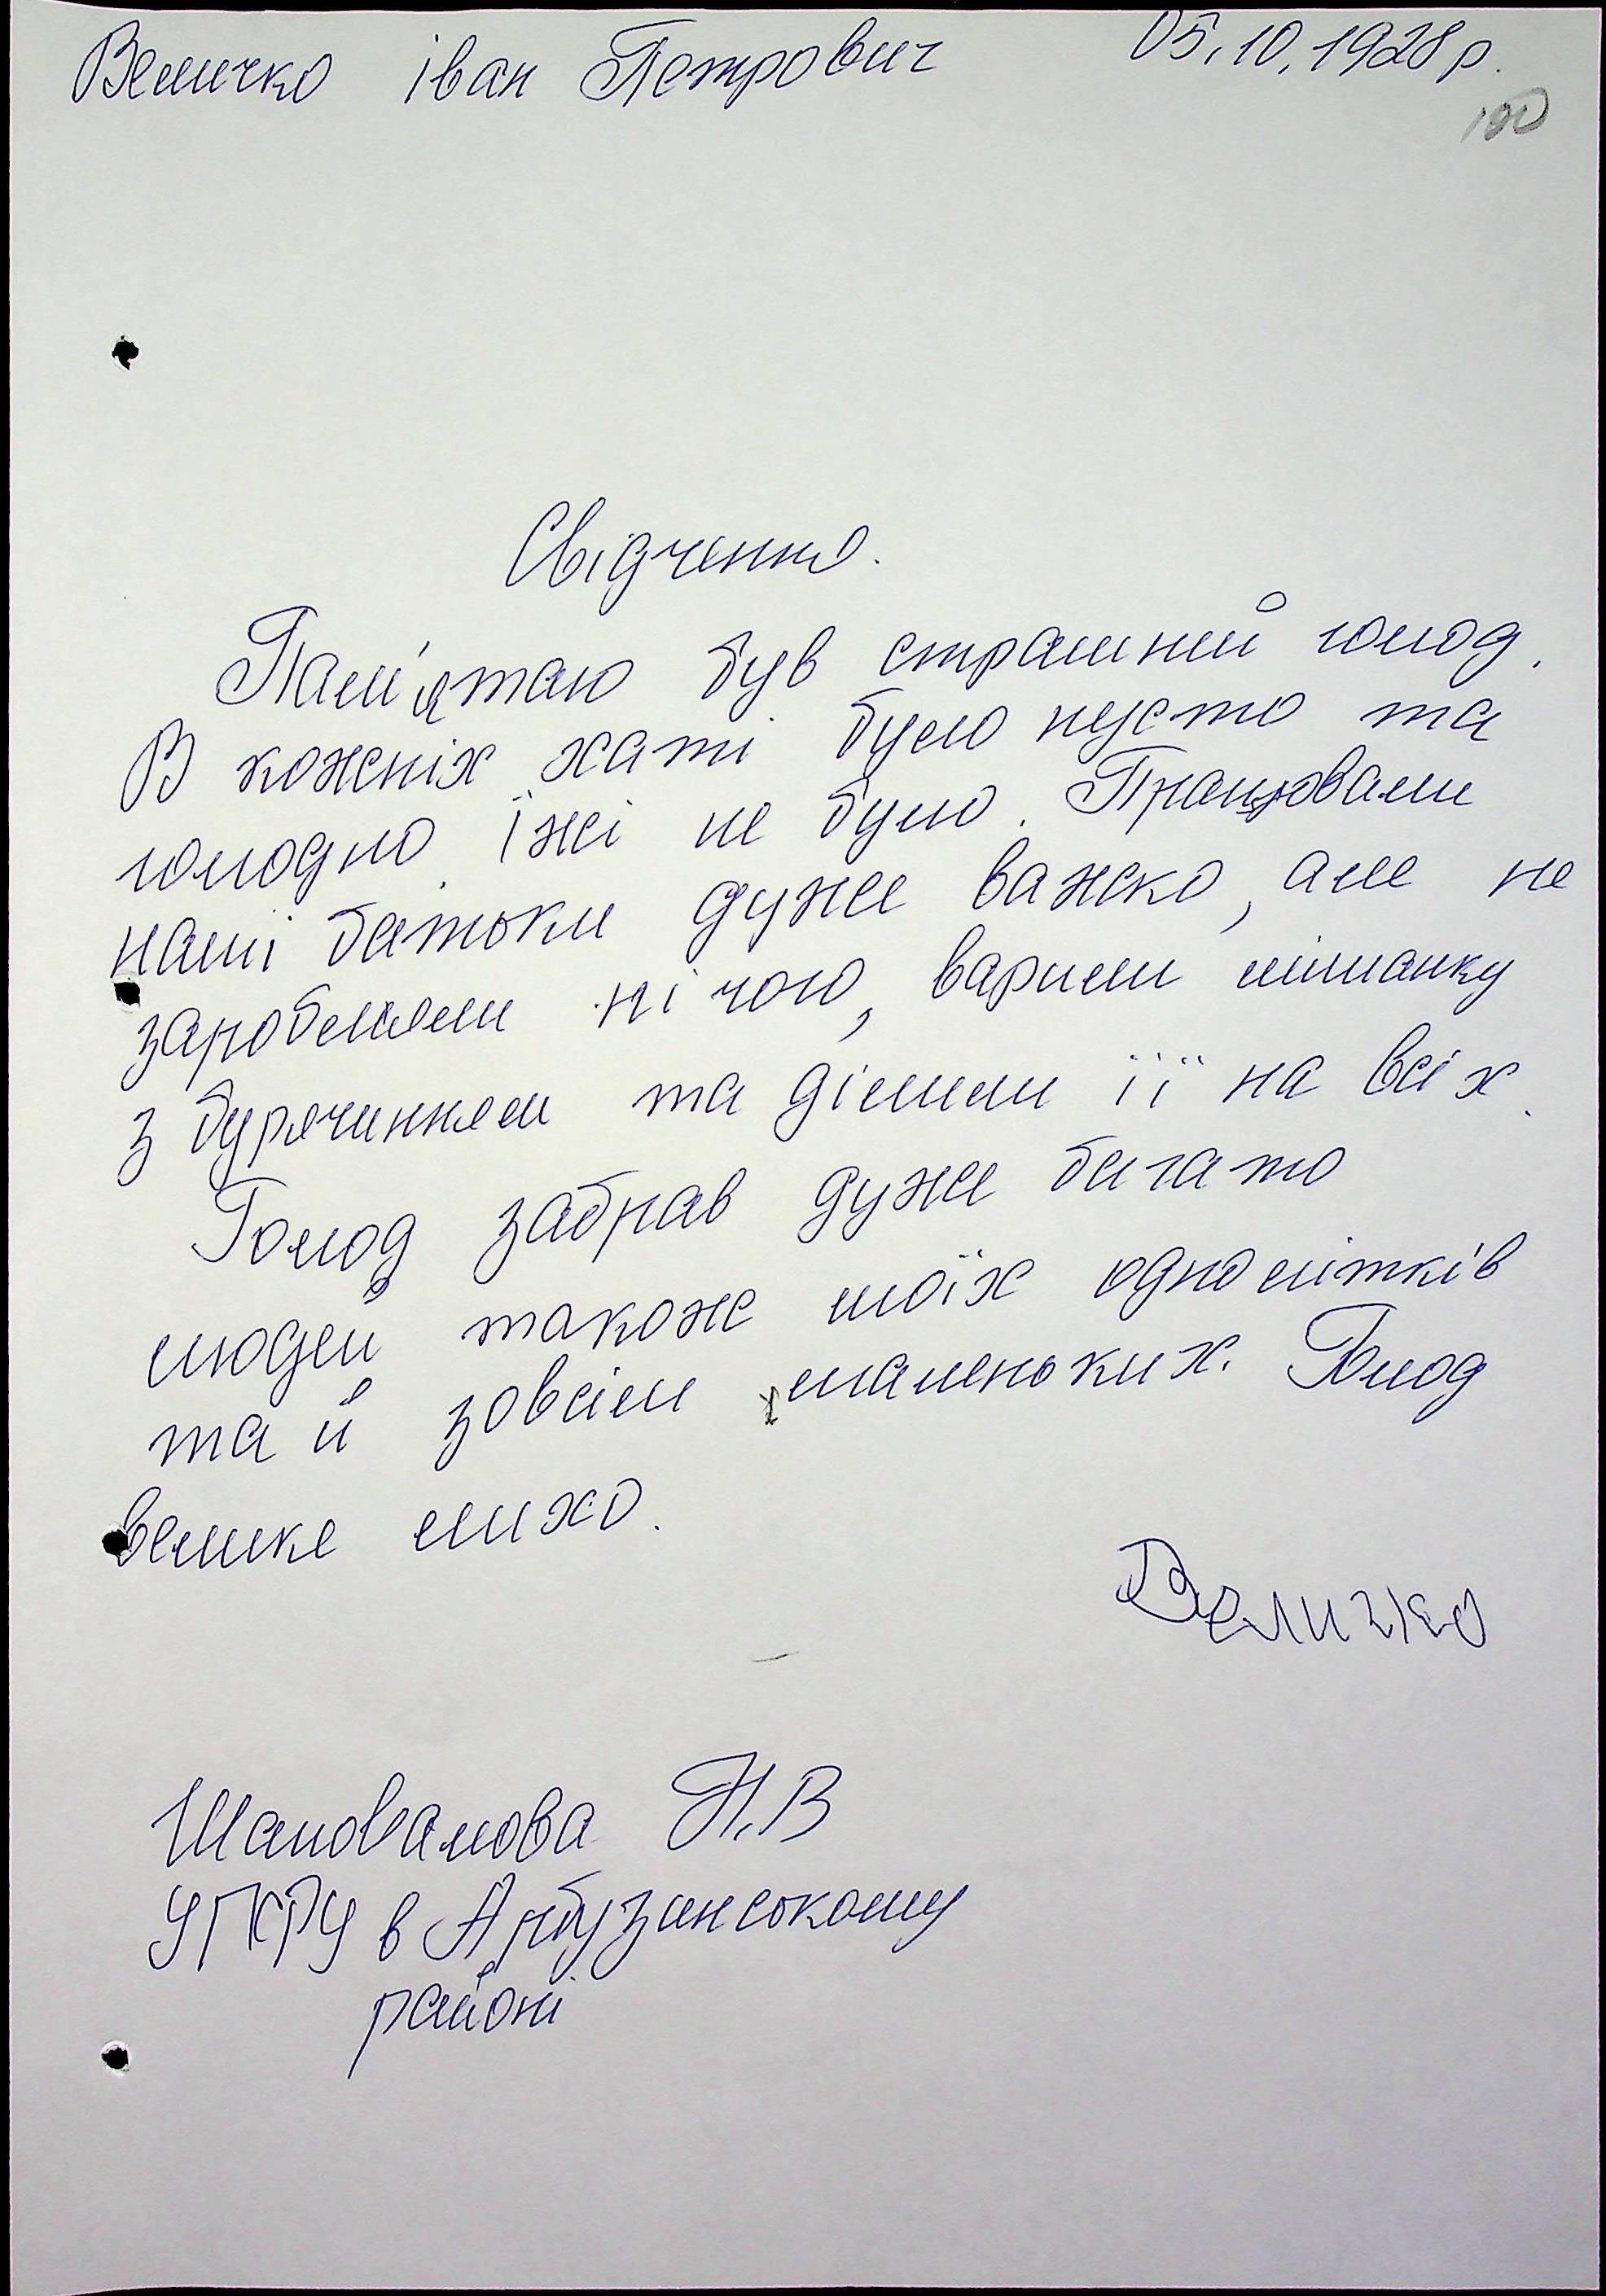 Величко іван Петрович 05.10.1928 р.
100
Свідчення.
Пам'ятаю був страшний голод.
В кожніх хаті було пусто та
голодно. Їжі не було. Працювали
наші батьки дуже важко, але не
заробляли ні чого, варили мішанку
з бурячинням та ділили її на всіх.
Голод забрав дуже багато
людей також моїх однолітків
та й зовсім маленьких. Голод
велике лихо.
Величко
Шаповалова Н.В
УПФУ в Арбузинському
районі